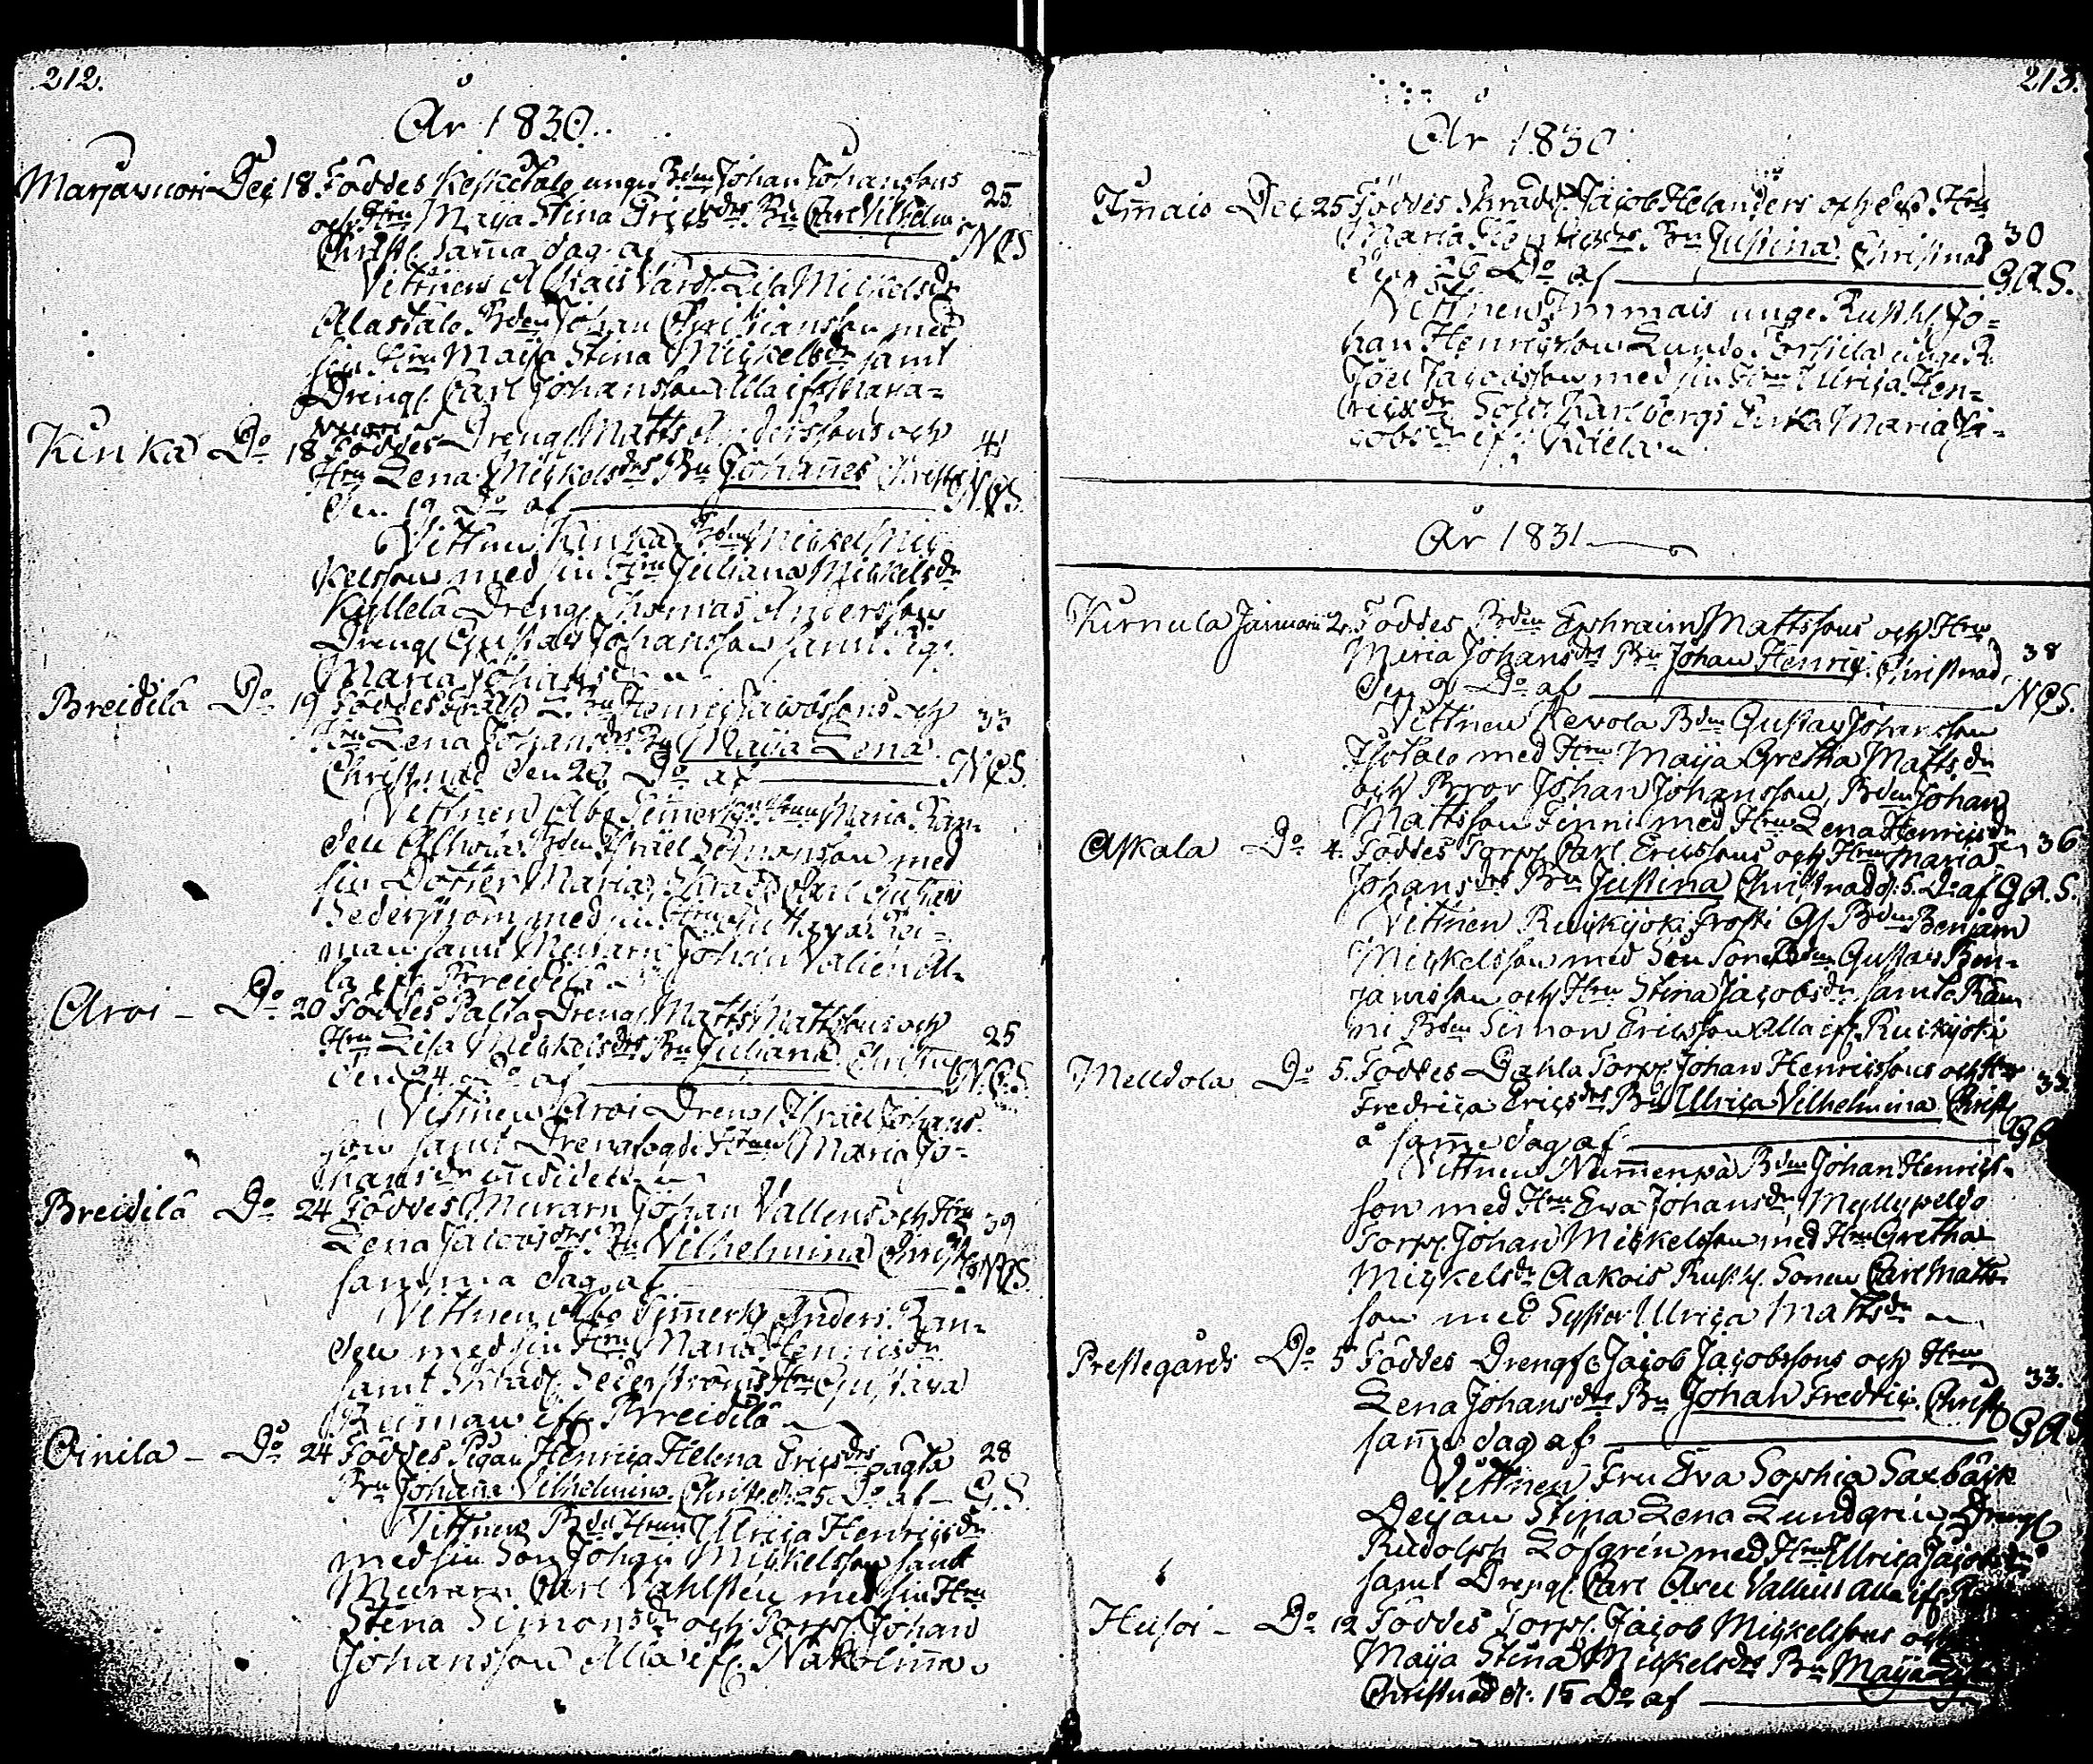 212.
År 1830.
Marjavuori Dec 18 Föddes Keskitalo unge Bden Johan Johanssons 25
och Hru Maija Stina Ericsdrs Bn Carl Vilhelm
Christ. samma dag af NCS
Vittnen Lisa Mickelsdr
Alastalo Bden Johan Christiansson med
sin Hru Maija Stina Mickelsdr samt
Dreng. Carl Johansson Alla ifr Marja=
vuori
Kinka Do 18 Föddes Dreng. Matts Anderssons och 41
Hru Lena Mickelsdrs Bn Johannes Christ. NCS.
den 19 Do af
Vittnen Kinka Bden Mickel Mic
kelsson med sin Hru Juliana Mickelsdr
Kyllelä Dreng. Thomas Andersson
Dreng Gustav Johansson samt Pig.
Maria Johansdr
Breidilä Do 19 Föddes Henric Jacobssons och 33
Hru Lena Johansdrs Bn Maija Lena
Christnad den 20 Do af NCS.
Vittnen Åbo Timmerk. Hrun Maria Ran
den Bden Israel Simonsson med
sin Dotter Maria, Skrädd. Carl Gustav
Sederström med sin Hru Gustava Rei=
man samt Muraren Johan Valien Al=
la ifr Breidilä
Aroi - Do 20 Föddes Palta Dreng. Matts Mattssons och 25
Hru Lisa Mickelsdrs Bn Juliana Christn.
den 24 Do af N.C.S.
Vittnen Aroi Dreng. Israel Johans
son samt Hrun Maria Jo=
hansdr
Breidilä Do 24 Föddes Muraren Johan Vallens och Hru 39
Lena Jacobsdrs Bn Vilhelmina Christ.
samma dag af NCS.
Vittnen Åbo Timmerk. Anders Ran=
den med sin Hru Maria Henricsdr
samt Skrädd. Sederströms Hru Gustava
Reiman ifr. Breidilä
Oinila - Do 24 Föddes Pigan Henrica Helena Ericsdrs oägta 28
Bn Johanna Vilhelmina. Christ. d. 25 Do af - G.S.
Vittnen Bde Hrun Ulrica Henricsdr
med sin Son Johan Mickelsson samt
Muraren Carl Vahlsten med sin Hru
Stina Simonsdr och Torp. Johan
Johansson Alla ifr. Nakolinna
213.
År 1830
Immais Dec 25 Föddes Skrädd. Jacob Helanders och dess Hru
Maria Henricsdrs Bn Justina Christnad 30
den 26 Do af G.A.S.
Vittnen Immais unge Rusth. Jo=
han Henricsson Lundo
Joel Jacobsson med sin Hru Ulrica Hen=
ricsdr Sold. Karlbergs Enka Maria Ja=
cobsdr ifr.
År 1831
Kurnula Januarii 2. Föddes Bden Ephraim Mattssons och Hru
Maria Johansdrs Bn Johan Henric. Christnad 38
den 9 Do af NCS.
Vittnen Kevola Bden Gustav Johansson
Isotalo med Hru Maija Gretha Mattsdr
och Bror Johan Johansson, Bden Johan
Mattsson Finni med Hru Lena Henricsdr
Askala Do 4. Föddes Torp. Carl Ericssons och Hru Maria 36
Johansdrs Bn Justina Christnad d. 5. Do af G.A.S.
Vittnen Ruiskijoki Bden Benjam
Mickelsson med Son Bden Gustav Ben=
jamisson och Hru Stina Jacobsdr samt
Bden Simon Ericsson alla ifr. Ruiskijoki
Melldola Do 5. Föddes Dahla Torp. Johan Henricssons och Hru
Fredrica Ericsdrs Bn Ulrica Vilhelmina Christ.
å samma dag af
Vittnen Nummenpä Bden Johan Henrics=
son med Hru Eva Johansdr, Myllypeldo
Torp. Johan Mickelsson med Hru Gretha
Mickelsdr Aakois Rusth. Sonen Carl Matts
son med Syster Ulrica Mattsdr
Prestegårds Do 5 Föddes Dreng. Jacob Jacobssons och Hru
Lena Johansdrs Bn Johan Fredric. Christ 33.
samma dag af GAS
Vittnen Fru Eva Sophia Saxbäck
Dejan Stina Lena Lundgrén, Dreng.
Rudolph Löfgrén med Hru Ulrica Jacobsdr
samt Dreng. Carl Axel Vallens alla ifr
Husoi - Do 12 Föddes Torp. Jacob Mickelssons och
Maija Stina Mickelsdrs Bn Maija
Christnad d. 15 Do af